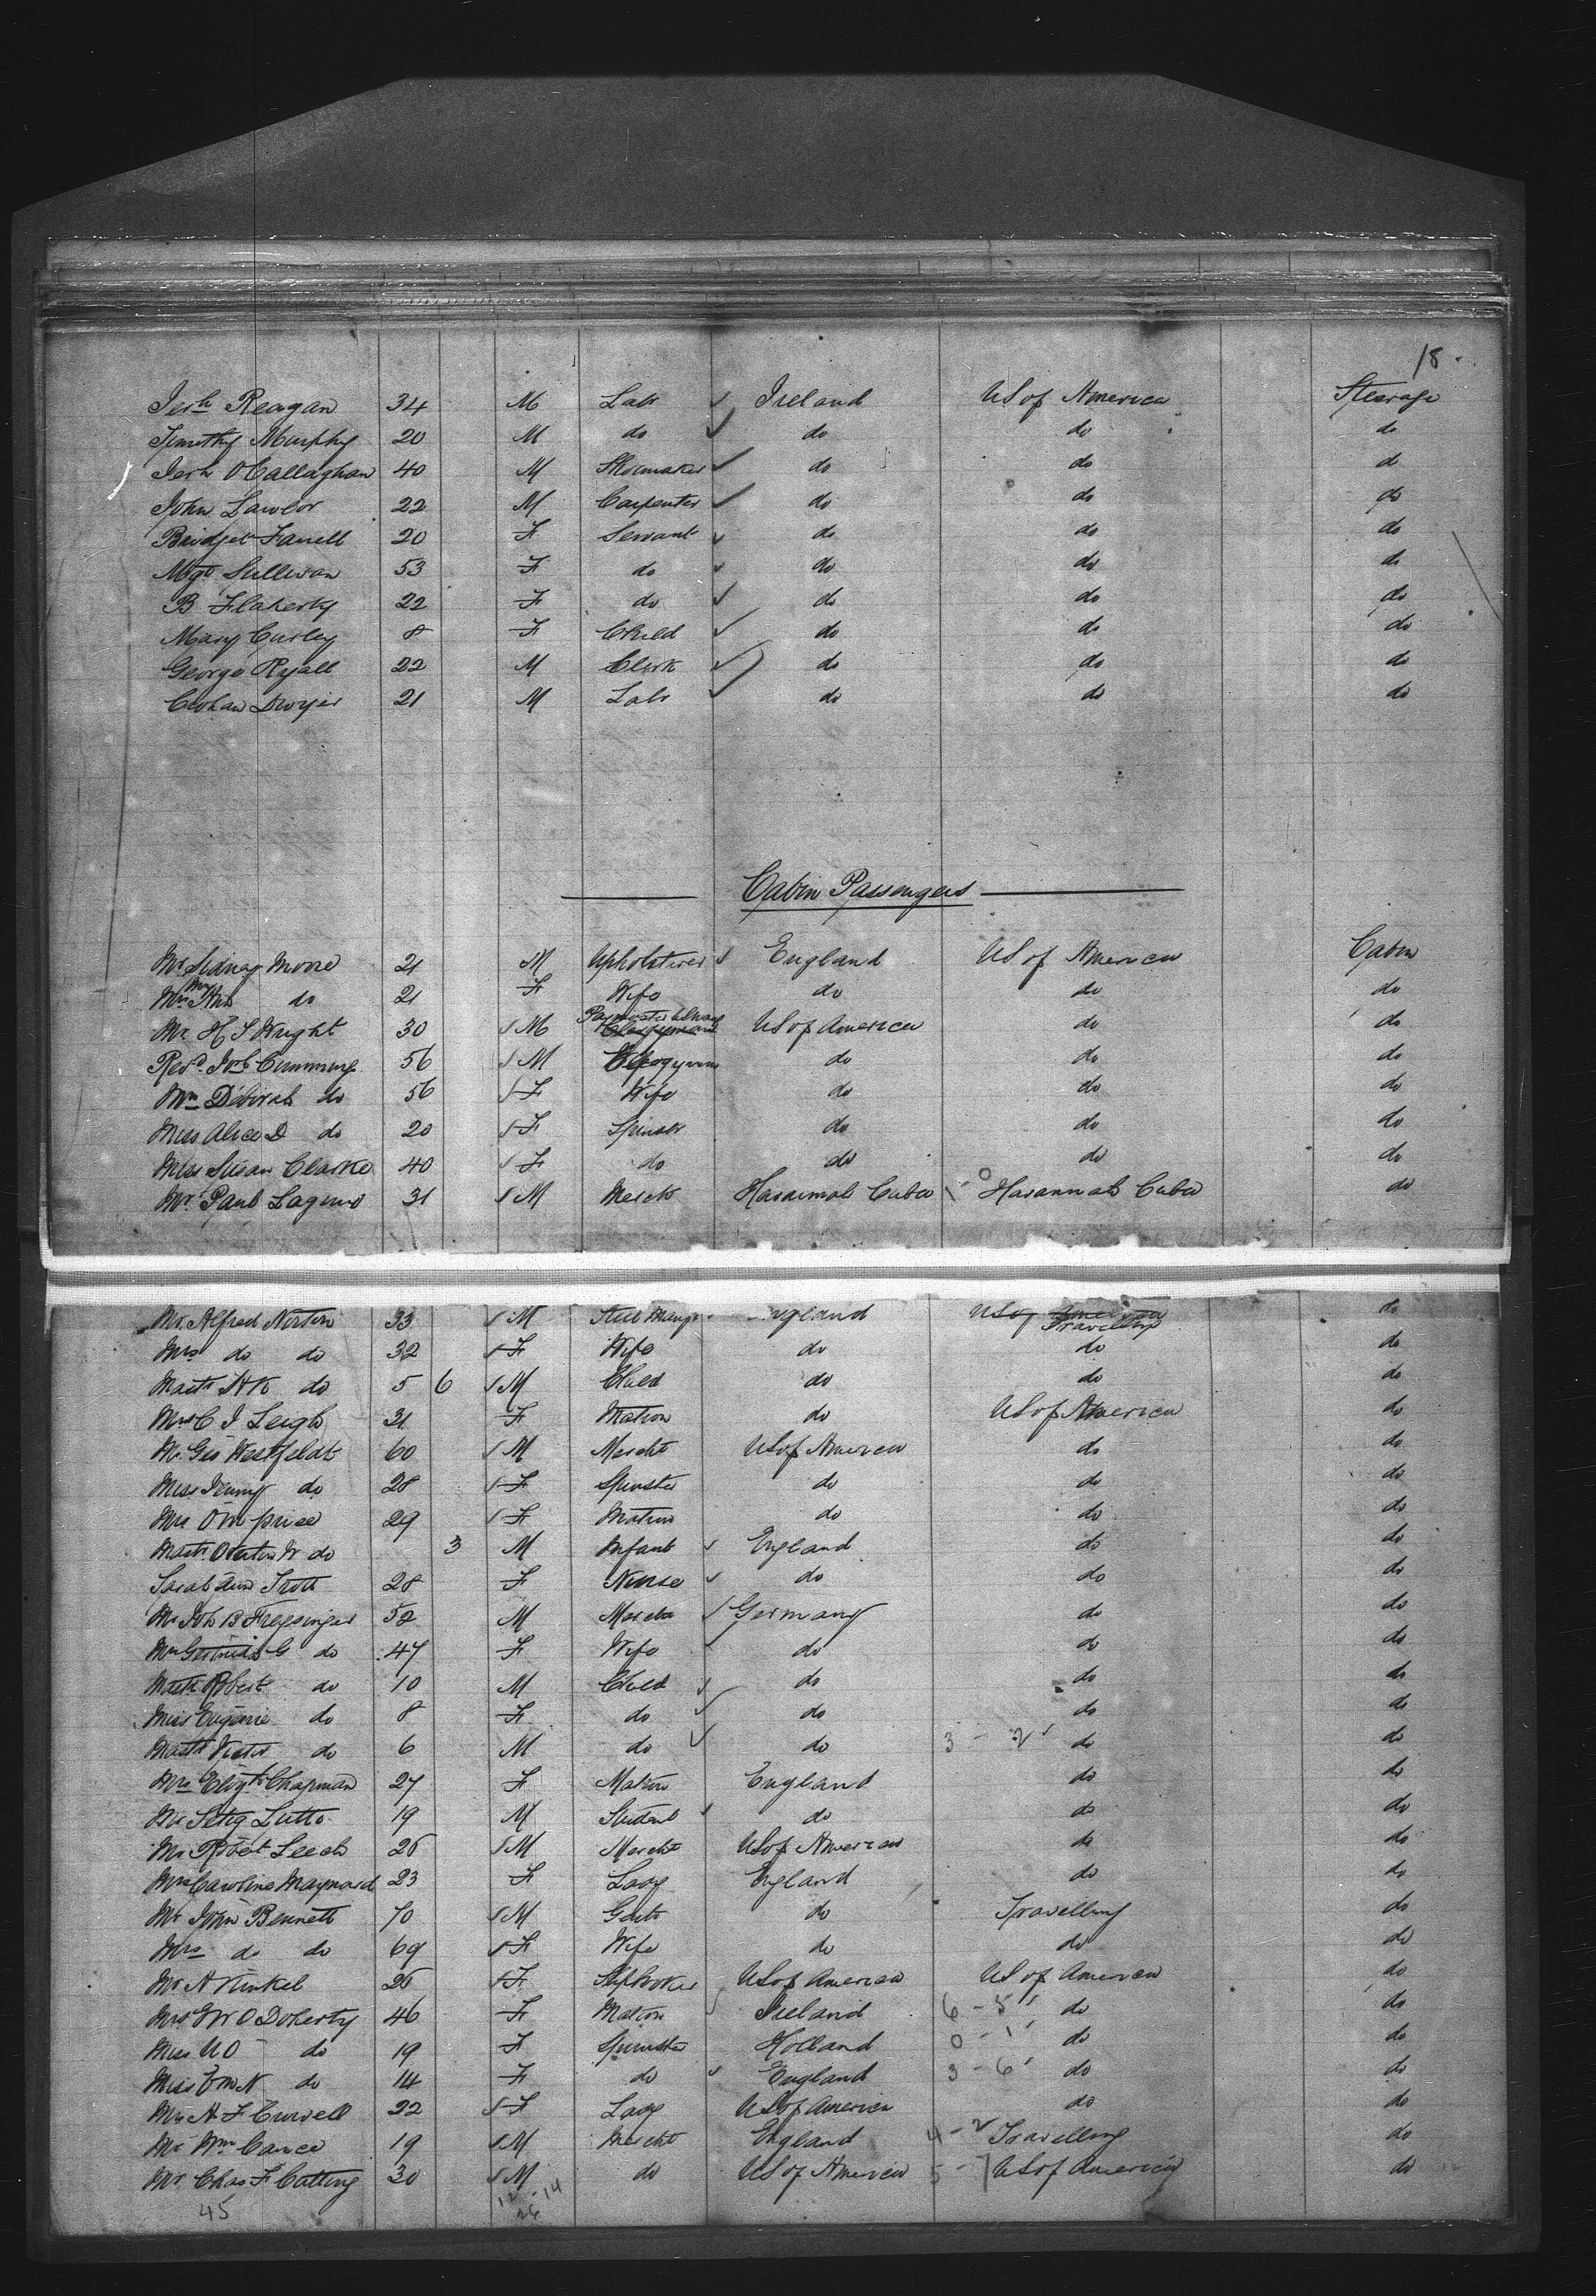 18.
Jerh Reagan 34 M Labr Ireland US of America Steerage
Timothy Murphy 20 M do do do do
Jerh OCallaghan 40 M Shoemaker do do d
John Lawlor 22 M Carpenter do do do
Bridget Farrell 20 F Servant do do do
Mgt Sullivan 53 F do do do do
B Flaherty 22 F do do do do
Mary Curley 8 F Child do do do
George Ryall 22 M Clerk do do do
Dwyer 21 M Labr do do do
Cabin Passengers
Mr Sidney Moore 21 M Upholsterer England US of America Cabin
Mrs do 21 F Wife do do do
Mr. H S Wright 30 M US of America do do
Revd. Cumming 56 M do do do
Mrs Deborah do 56 F Wife do do do
Miss Alice D do 20 F Spinstr do do do
Miss Susan Clarke 40 F do do do do
Mr. Paul 31 M Mercht Havannah Cuba 0 Havannah Cuba do
Mr. Alfred Norton 33 M England US of America Travelling do
Mrs do do 32 F Wife do do do
Mastr H K do 5 6 M Child do do do
Mrs C J Leigh 31 F Matron do US of America do
Mr. Geo Westfeldt 60 M Mercht US of America do do
Miss Jenny do 28 F Spinster do do do
Mrs price 29 F Matron do do do
Mastr. W do 3 M Infant England do do
Sarah Ann Trott 28 F Nurse do do do
Mr Joh B Freysinger 52 M Mercht Germany do do
Mrs Gertrude G do 47 F Wife do do do
Mastr Robert do 10 M Child do do do
Miss Eugenie do 8 F do do do do
Mastr Victor do 6 M do do 3 - 2 do do
Mrs Elizth Chapman 27 F Matron England do do
Mr 19 M Student do do do
Mr Robert Leech 26 M Mercht US of America do do
Mrs Caroline Maynard 23 F Lady England do do
Mr John Bennett 70 M Gent do Travelling do
Mrs do do 69 F Wife do do do
Mr A Kinkel 26 F US of America US of America do
Mrs O Doherty 46 F Matron Ireland 6 - 5 do do
Miss U O do 19 F Spinster Holland 0 - 1 do do
Miss do 14 F do England 3 - 6 do do
Mrs A F Curwell 22 F Lady US of America do do
Mr Wm Cance 19 M Mercht England 4 - 2 Travelling do
Mr. Chas F Cutting 30 M do US of America 5 - 7 US of America do
45 12 - 14
26